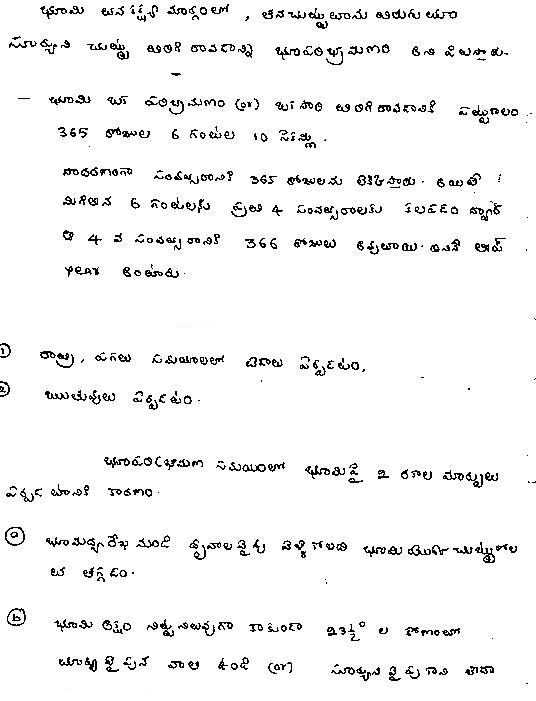 భూమి తన కక్ష్య మార్గంలో , తన చుట్టు తాను తిరుగుతూ
సూర్యుని చుట్టు తిరిగి రావడాన్ని భూపరిభ్రమణం అని పిలుస్తారు.
– భూమి ఒక పరిభ్రమణం (or) ఒకసారి తిరిగి రావడానికి పట్టుకాలం
365 రోజుల 6 గంటల 10 సెకన్లు.
సాధారణంగా సంవత్సరానికి 365 రోజులను లెక్కిస్తారు. అయితే
మిగిలిన 6 గంటలను ప్రతి 4 సంవత్సరాలకు కలపడం ద్వారా
ఆ 4 వ సంవత్సరానికి 366 రోజులు అవుతాయి. దీనికే లీప్
year అంటారు.
① రాత్రి, పగలు సమయాలలో తేడాలు ఏర్పడటం,
② ఋతువులు ఏర్పడటం.
భూపరిభ్రమణ సమయంలో భూమిపై 2 రకాల మార్పులు
ఏర్పడటానికి కారణం.
ⓐ భూమధ్యరేఖ నుండి ధృవాల వైపు వెళ్ళేకొలది భూమి యొక్క చుట్టుకొల
త తగ్గడం.
ⓑ భూమి అక్షం నిట్టనిలువుగా కాకుండా 23½° ల కోణంలో
వైపునే వాలి ఉండి (or) సూర్యుని వైపుగాని